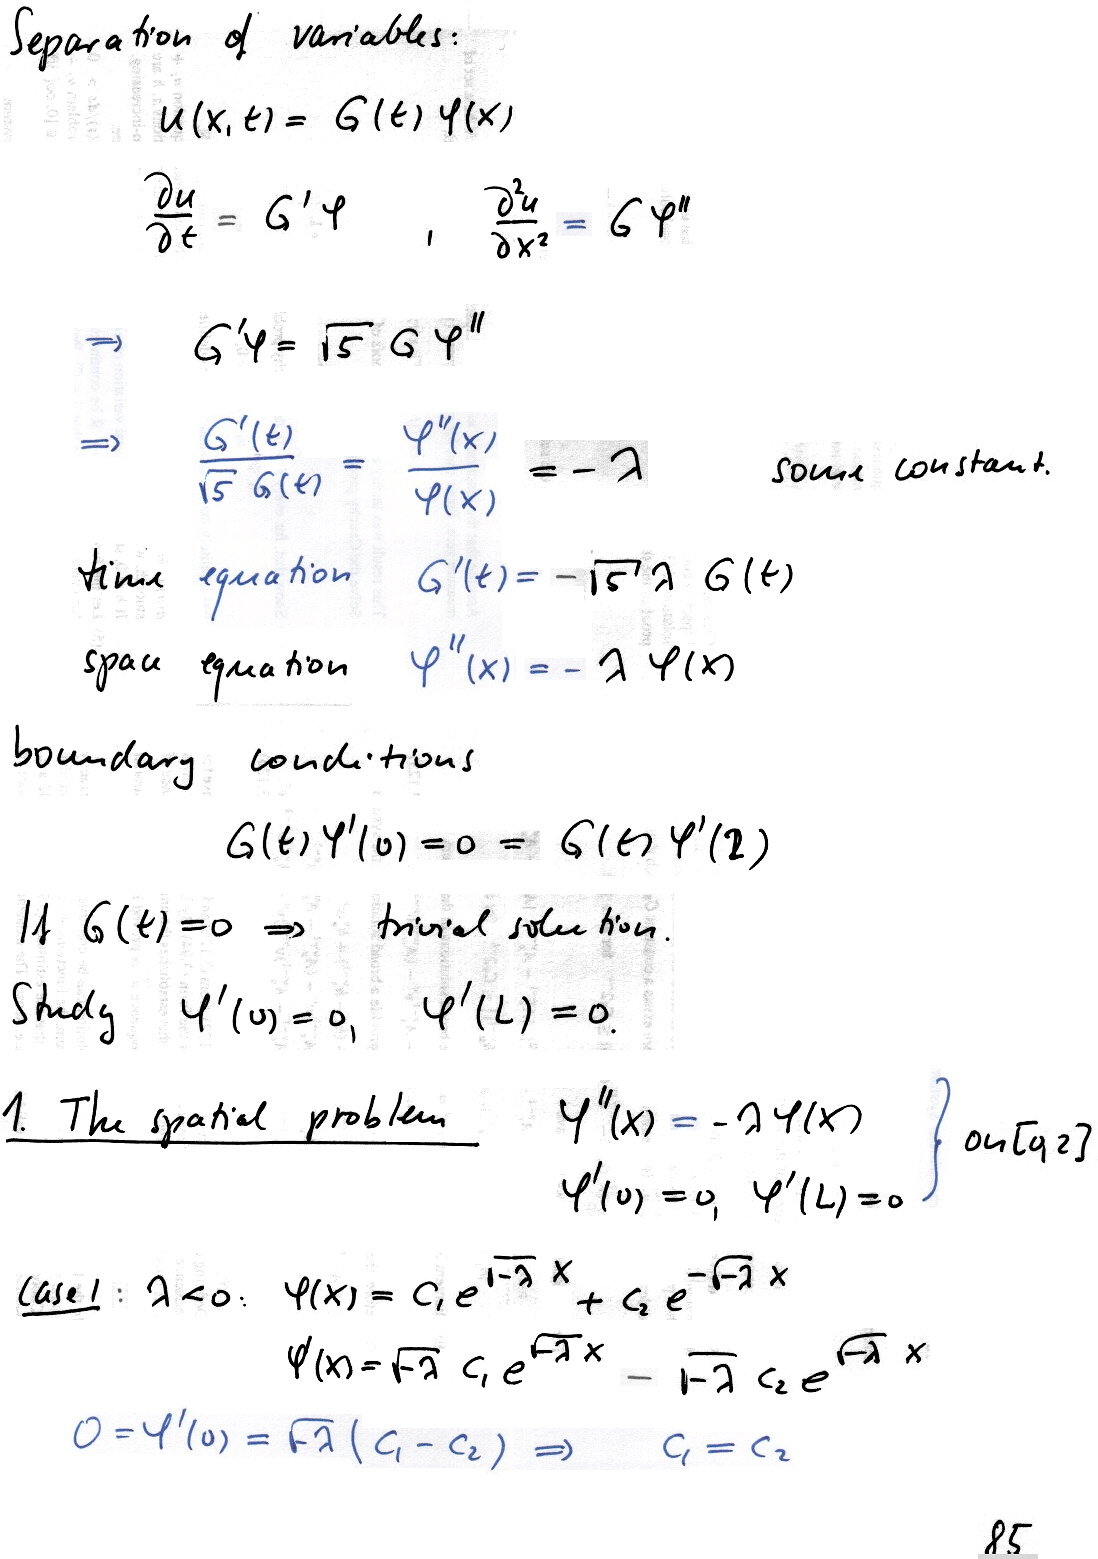 Separation of variables:
u(x,t) = G(t) φ(x)
∂u/∂t = G'φ , ∂²u/∂x² = G φ''
⇒ G'φ = √5 G φ''
⇒ G'(t)/(√5 G(t)) = φ''(x)/φ(x) = -λ some constant.
time equation G'(t) = -√5 λ G(t)
space equation φ''(x) = - λ φ(x)
boundary conditions
G(t) φ'(0) = 0 = G(t) φ'(2)
If G(t) = 0 ⇒ trivial solution.
Study φ'(0) = 0, φ'(L) = 0.
1. The spatial problem φ''(x) = -λ φ(x) } on [0,2]
φ'(0) = 0, φ'(L) = 0
Case 1: λ<0: φ(x) = c₁ e^{√-λ x} + c₂ e^{-√-λ x}
φ'(x) = √-λ c₁ e^{√-λ x} - √-λ c₂ e^{√-λ x}
0 = φ'(0) = √-λ (c₁ - c₂) ⇒ c₁ = c₂
85